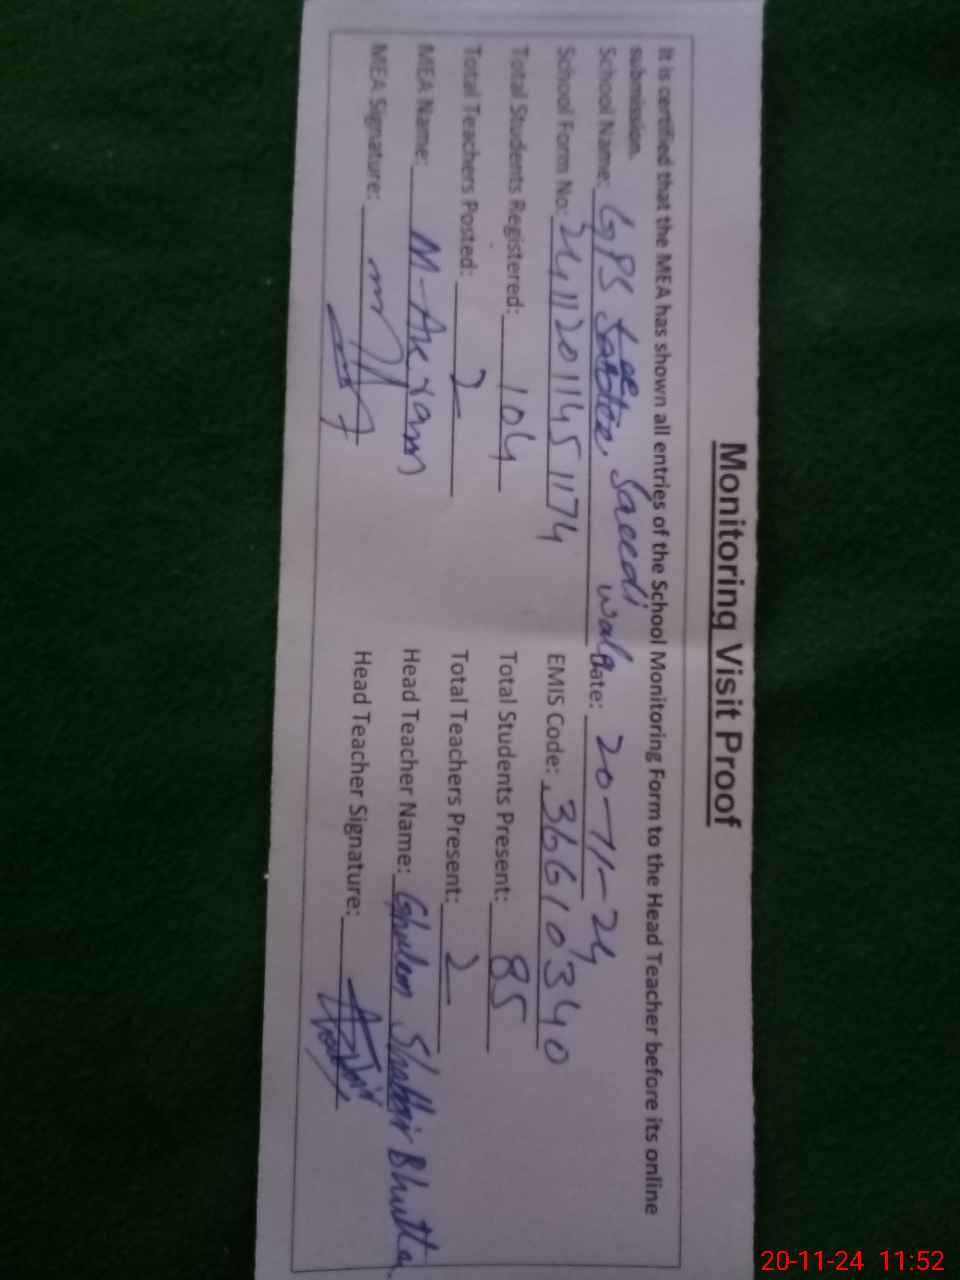 Monitoring Visit Proof
It is certified that the MEA has shown all entries of the School Monitoring Form to the Head Teacher before its online
submission.
School Name: GPS Saeedi wala Date: 20-11-24
School Form No: 241120114511174 EMIS Code: 36610340
Total Students Registered: 104 Total Students Present: 85
Total Teachers Posted: 2 Total Teachers Present: 2
MEA Name: M-Akram Head Teacher Name: Ghulam Shabbir Bhutta
MEA Signature: Head Teacher Signature:
20-11-24 11:52